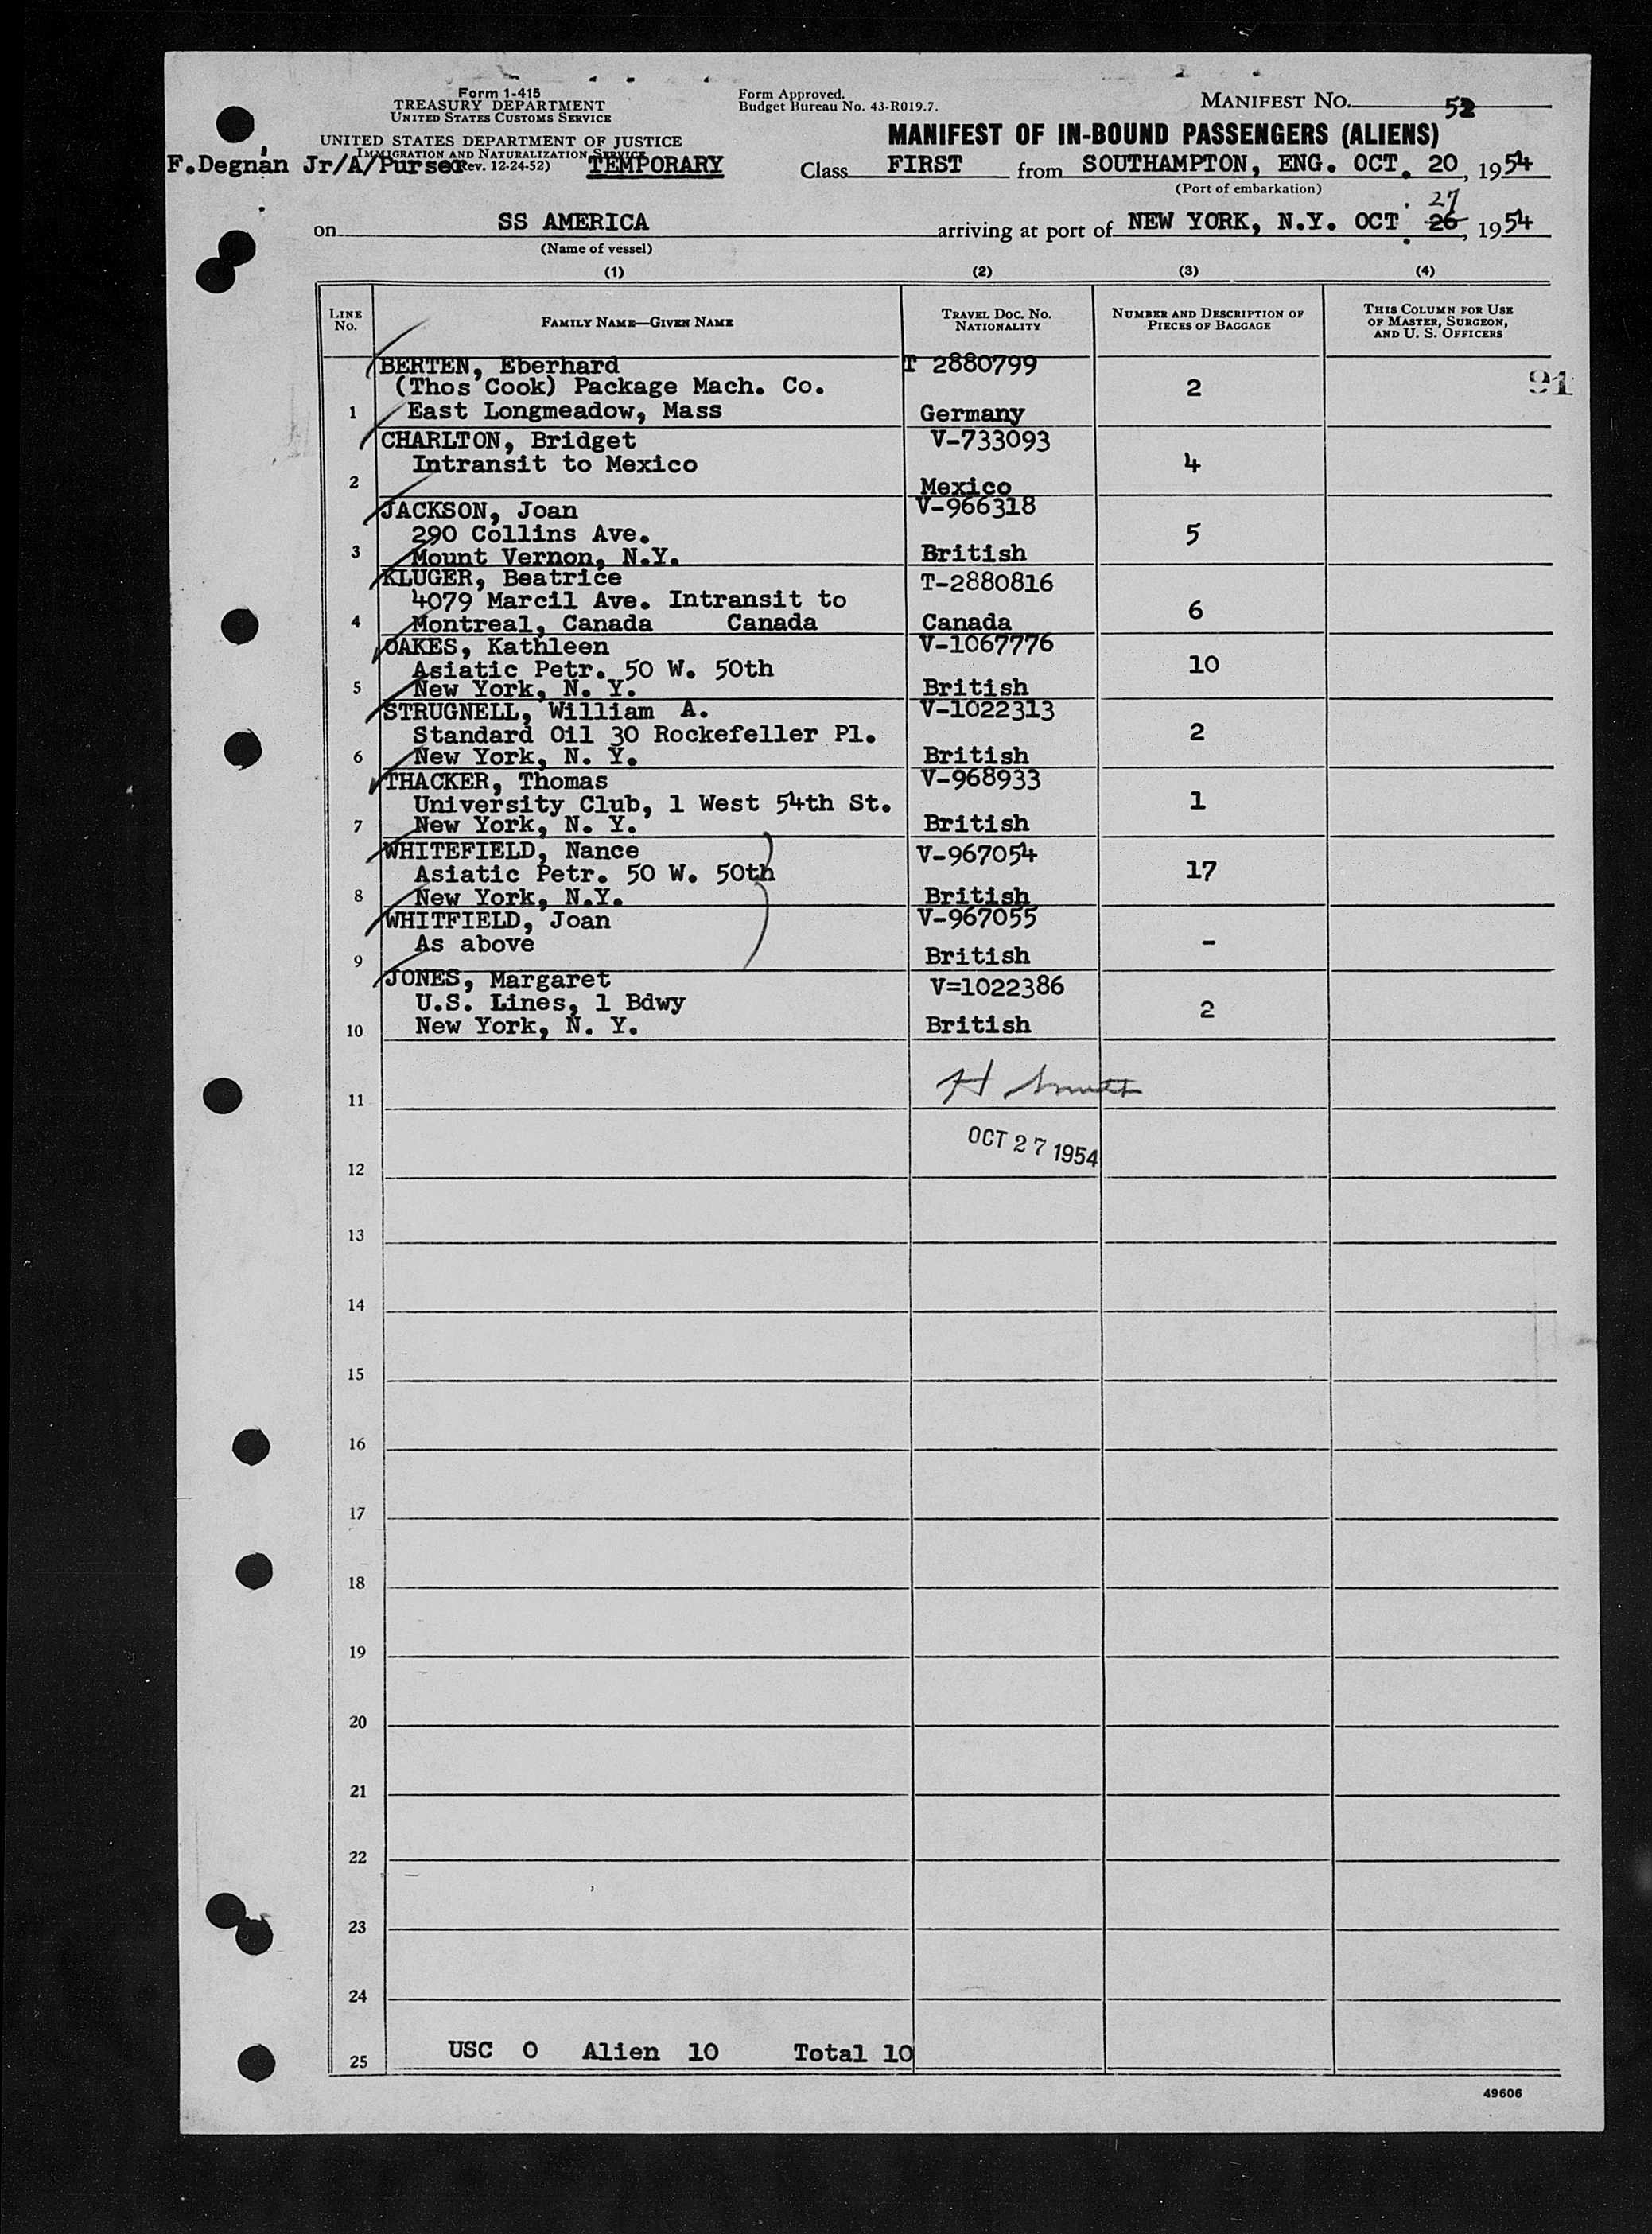 Form I-415
TREASURY DEPARTMENT
UNITED STATES CUSTOMS SERVICE
UNITED STATES DEPARTMENT OF JUSTICE
IMMIGRATION AND NATURALIZATION SERVICE
(Rev. 12-24-52)
F.Degnan Jr/A/Purser
TEMPORARY
Form Approved.
Budget Bureau No. 43-R019.7.
MANIFEST NO. 52
MANIFEST OF IN-BOUND PASSENGERS (ALIENS)
Class FIRST from SOUTHAMPTON, ENG. OCT. 20, 1954
(Port of embarkation)
27
on SS AMERICA arriving at port of NEW YORK, N.Y. OCT. 26, 1954
(Name of vessel)
(1) (2) (3) (4)
LINE NO.
FAMILY NAME—GIVEN NAME
TRAVEL DOC. NO. NATIONALITY
NUMBER AND DESCRIPTION OF PIECES OF BAGGAGE
THIS COLUMN FOR USE OF MASTER, SURGEON, AND U. S. OFFICERS
BERTEN, Eberhard T 2880799
(Thos Cook) Package Mach. Co. 2 91
1 East Longmeadow, Mass Germany
CHARLTON, Bridget V-733093
Intransit to Mexico 4
2 Mexico
JACKSON, Joan V-966318
290 Collins Ave. 5
3 Mount Vernon, N.Y. British
KLUGER, Beatrice T-2880816
4079 Marcil Ave. Intransit to 6
4 Montreal, Canada Canada Canada
OAKES, Kathleen V-1067776
Asiatic Petr. 50 W. 50th 10
5 New York, N. Y. British
STRUGNELL, William A. V-1022313
Standard Oil 30 Rockefeller Pl. 2
6 New York, N. Y. British
THACKER, Thomas V-968933
University Club, 1 West 54th St. 1
7 New York, N. Y. British
WHITEFIELD, Nance V-967054
Asiatic Petr. 50 W. 50th 17
8 New York, N.Y. British
WHITFIELD, Joan V-967055
As above -
9 British
JONES, Margaret V=1022386
U.S. Lines, 1 Bdwy 2
10 New York, N. Y. British
H Smith
11
OCT 27 1954
12
13
14
15
16
17
18
19
20
21
22
23
24
USC 0 Alien 10 Total 10
25
49606